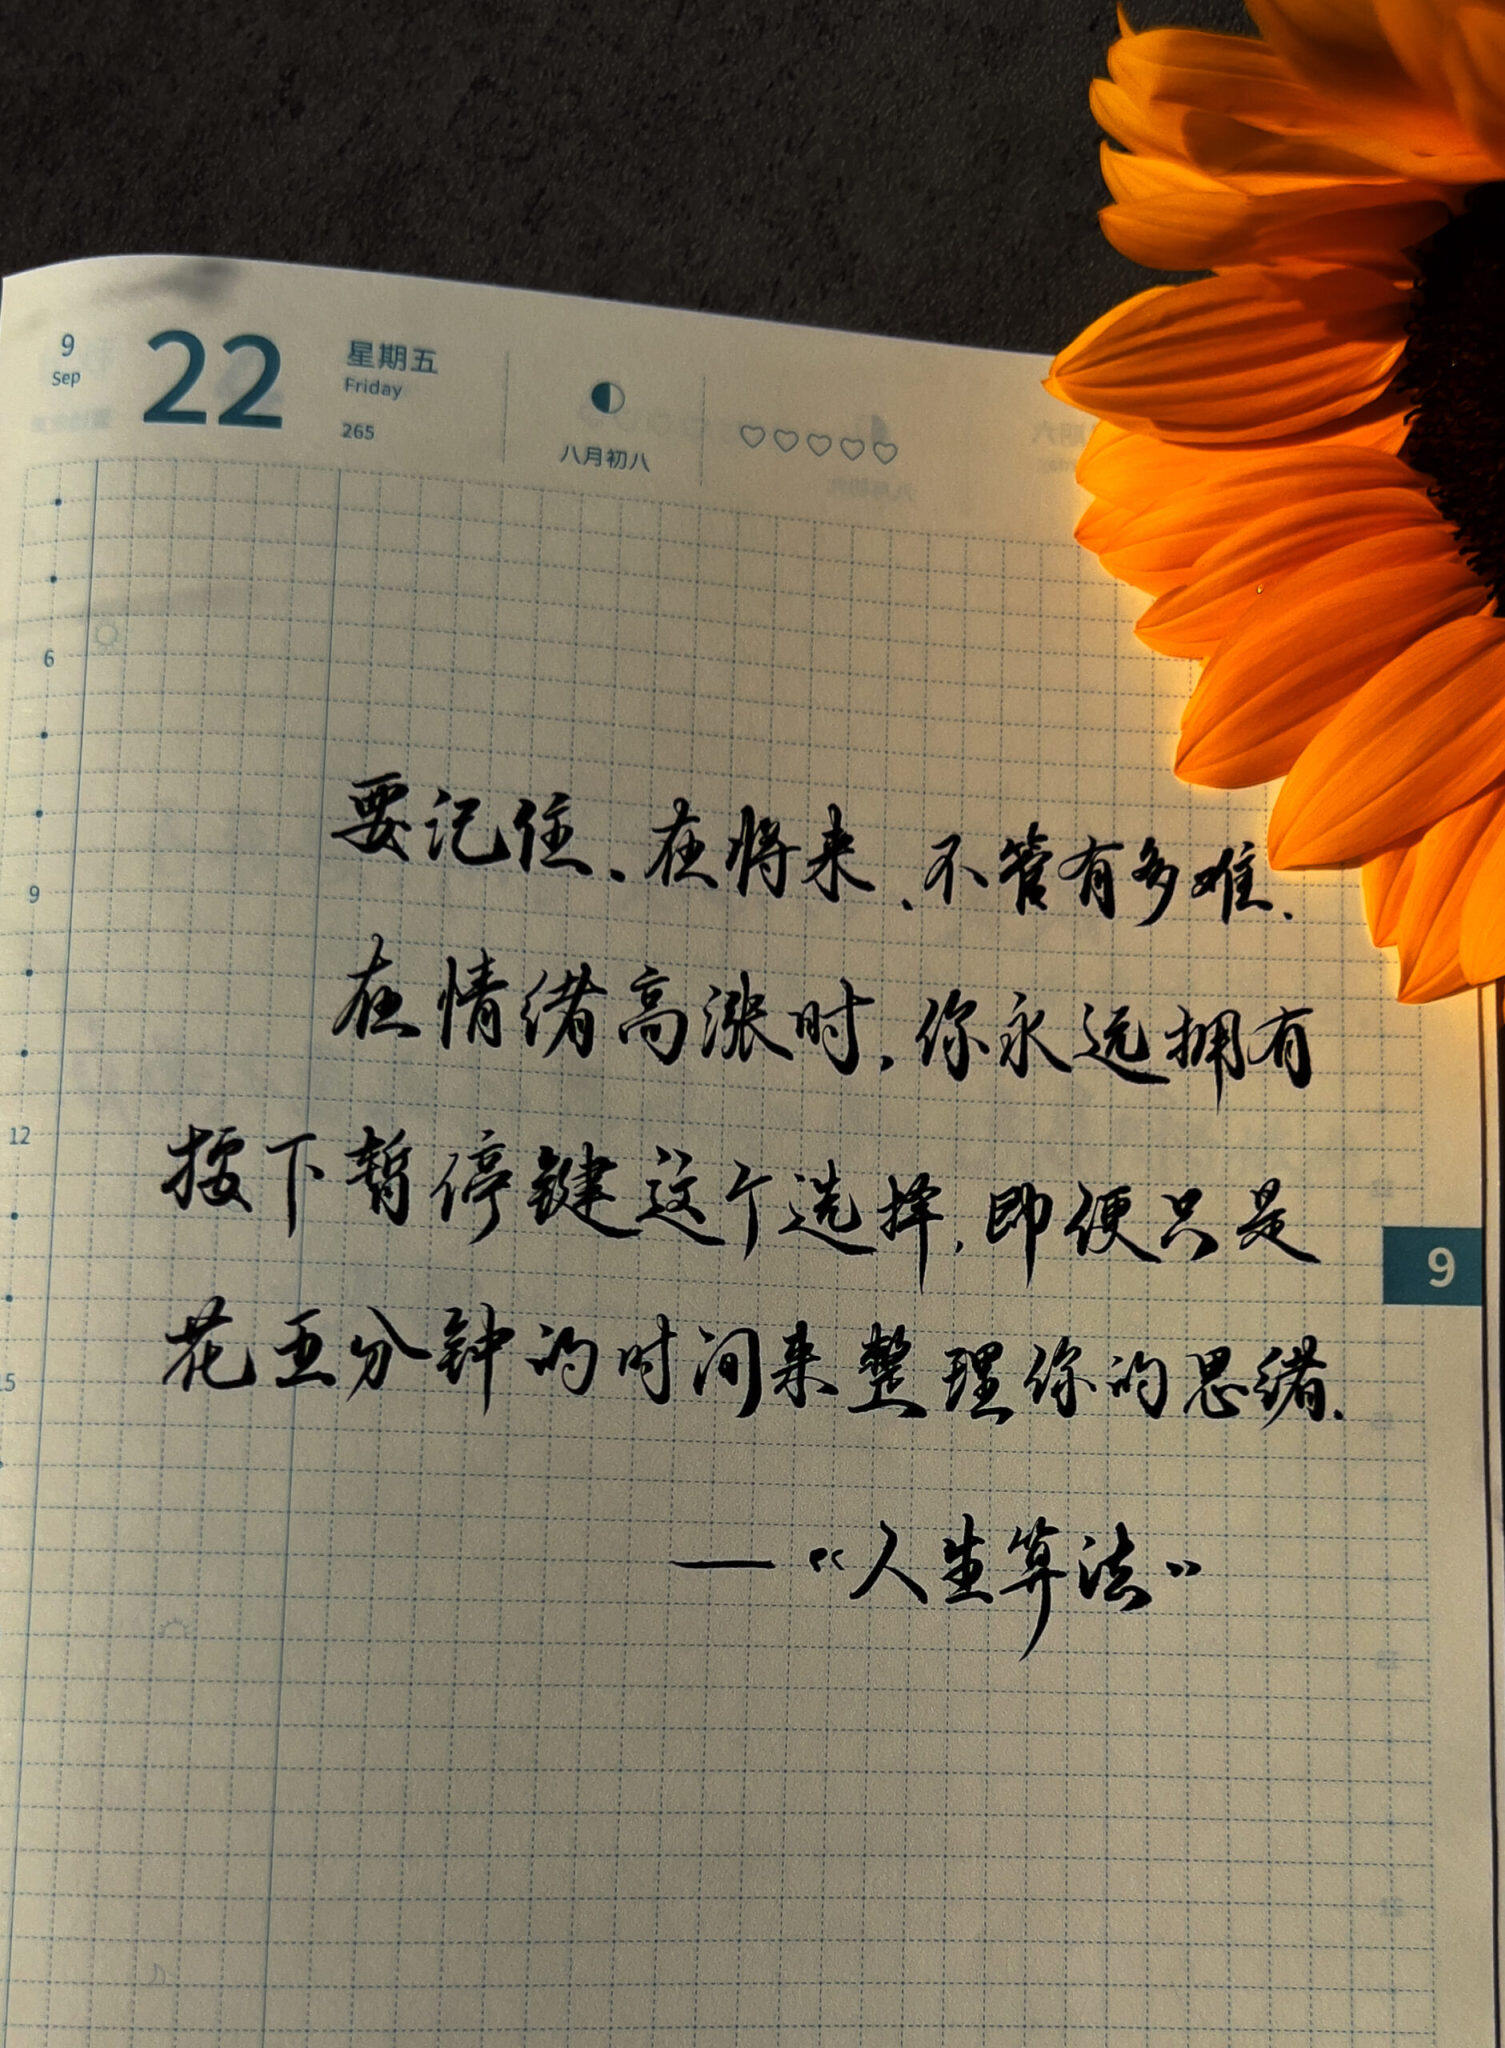 9
Sep
22
星期五
Friday
265
八月初八
6
9
12
要记住、在将来、不管有多难、
在情绪高涨时,你永远拥有
按下暂停键这个选择,即便只是
花五分钟的时间来整理你的思绪.
—“人生算法”
9